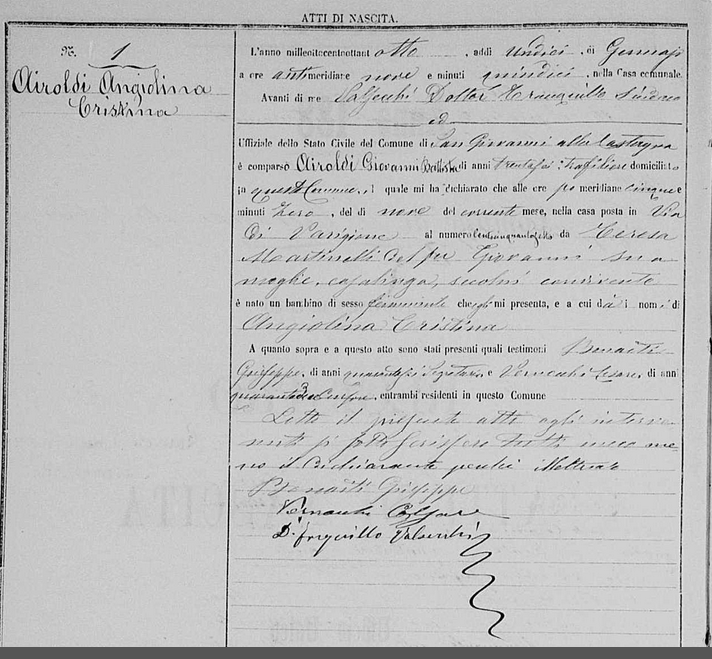 ATTI DI NASCITA.
N. 1
Airoldi Angiolina
Cristina
L'anno milleottocentottant otto, addì undici, di Gennajo
a ore antimeridiane nove e minuti quindici, nella Casa comunale.
Avanti di me Dottor Tranquillo Sindaco
ed
Uffiziale dello Stato Civile del Comune di San Giovanni alla Castagna
è comparso Airoldi Giovanni Battista di anni trentasei trafiliere domiciliato
in questo Comune, il quale mi ha dichiarato che alle ore po meridiane cinque e
minuti zero, del dì nove del corrente mese, nella casa posta in Via
di Varigione al numero da Teresa
Martinelli del fu Giovanni sua
moglie, casalinga, secolui convivente
è nato un bambino di sesso femminile che egli mi presenta, e a cui dà i nomi di
Angiolina Cristina
A quanto sopra e a questo atto sono stati presenti quali testimoni Bonaiti
Giuseppe, di anni Segretario e Cesare, di anni
entrambi residenti in questo Comune
Letto il presente atto agli interve
nuti si sottoscrissero tutti meco me
no il dichiarante perché illetterato
Bonaiti Giuseppe